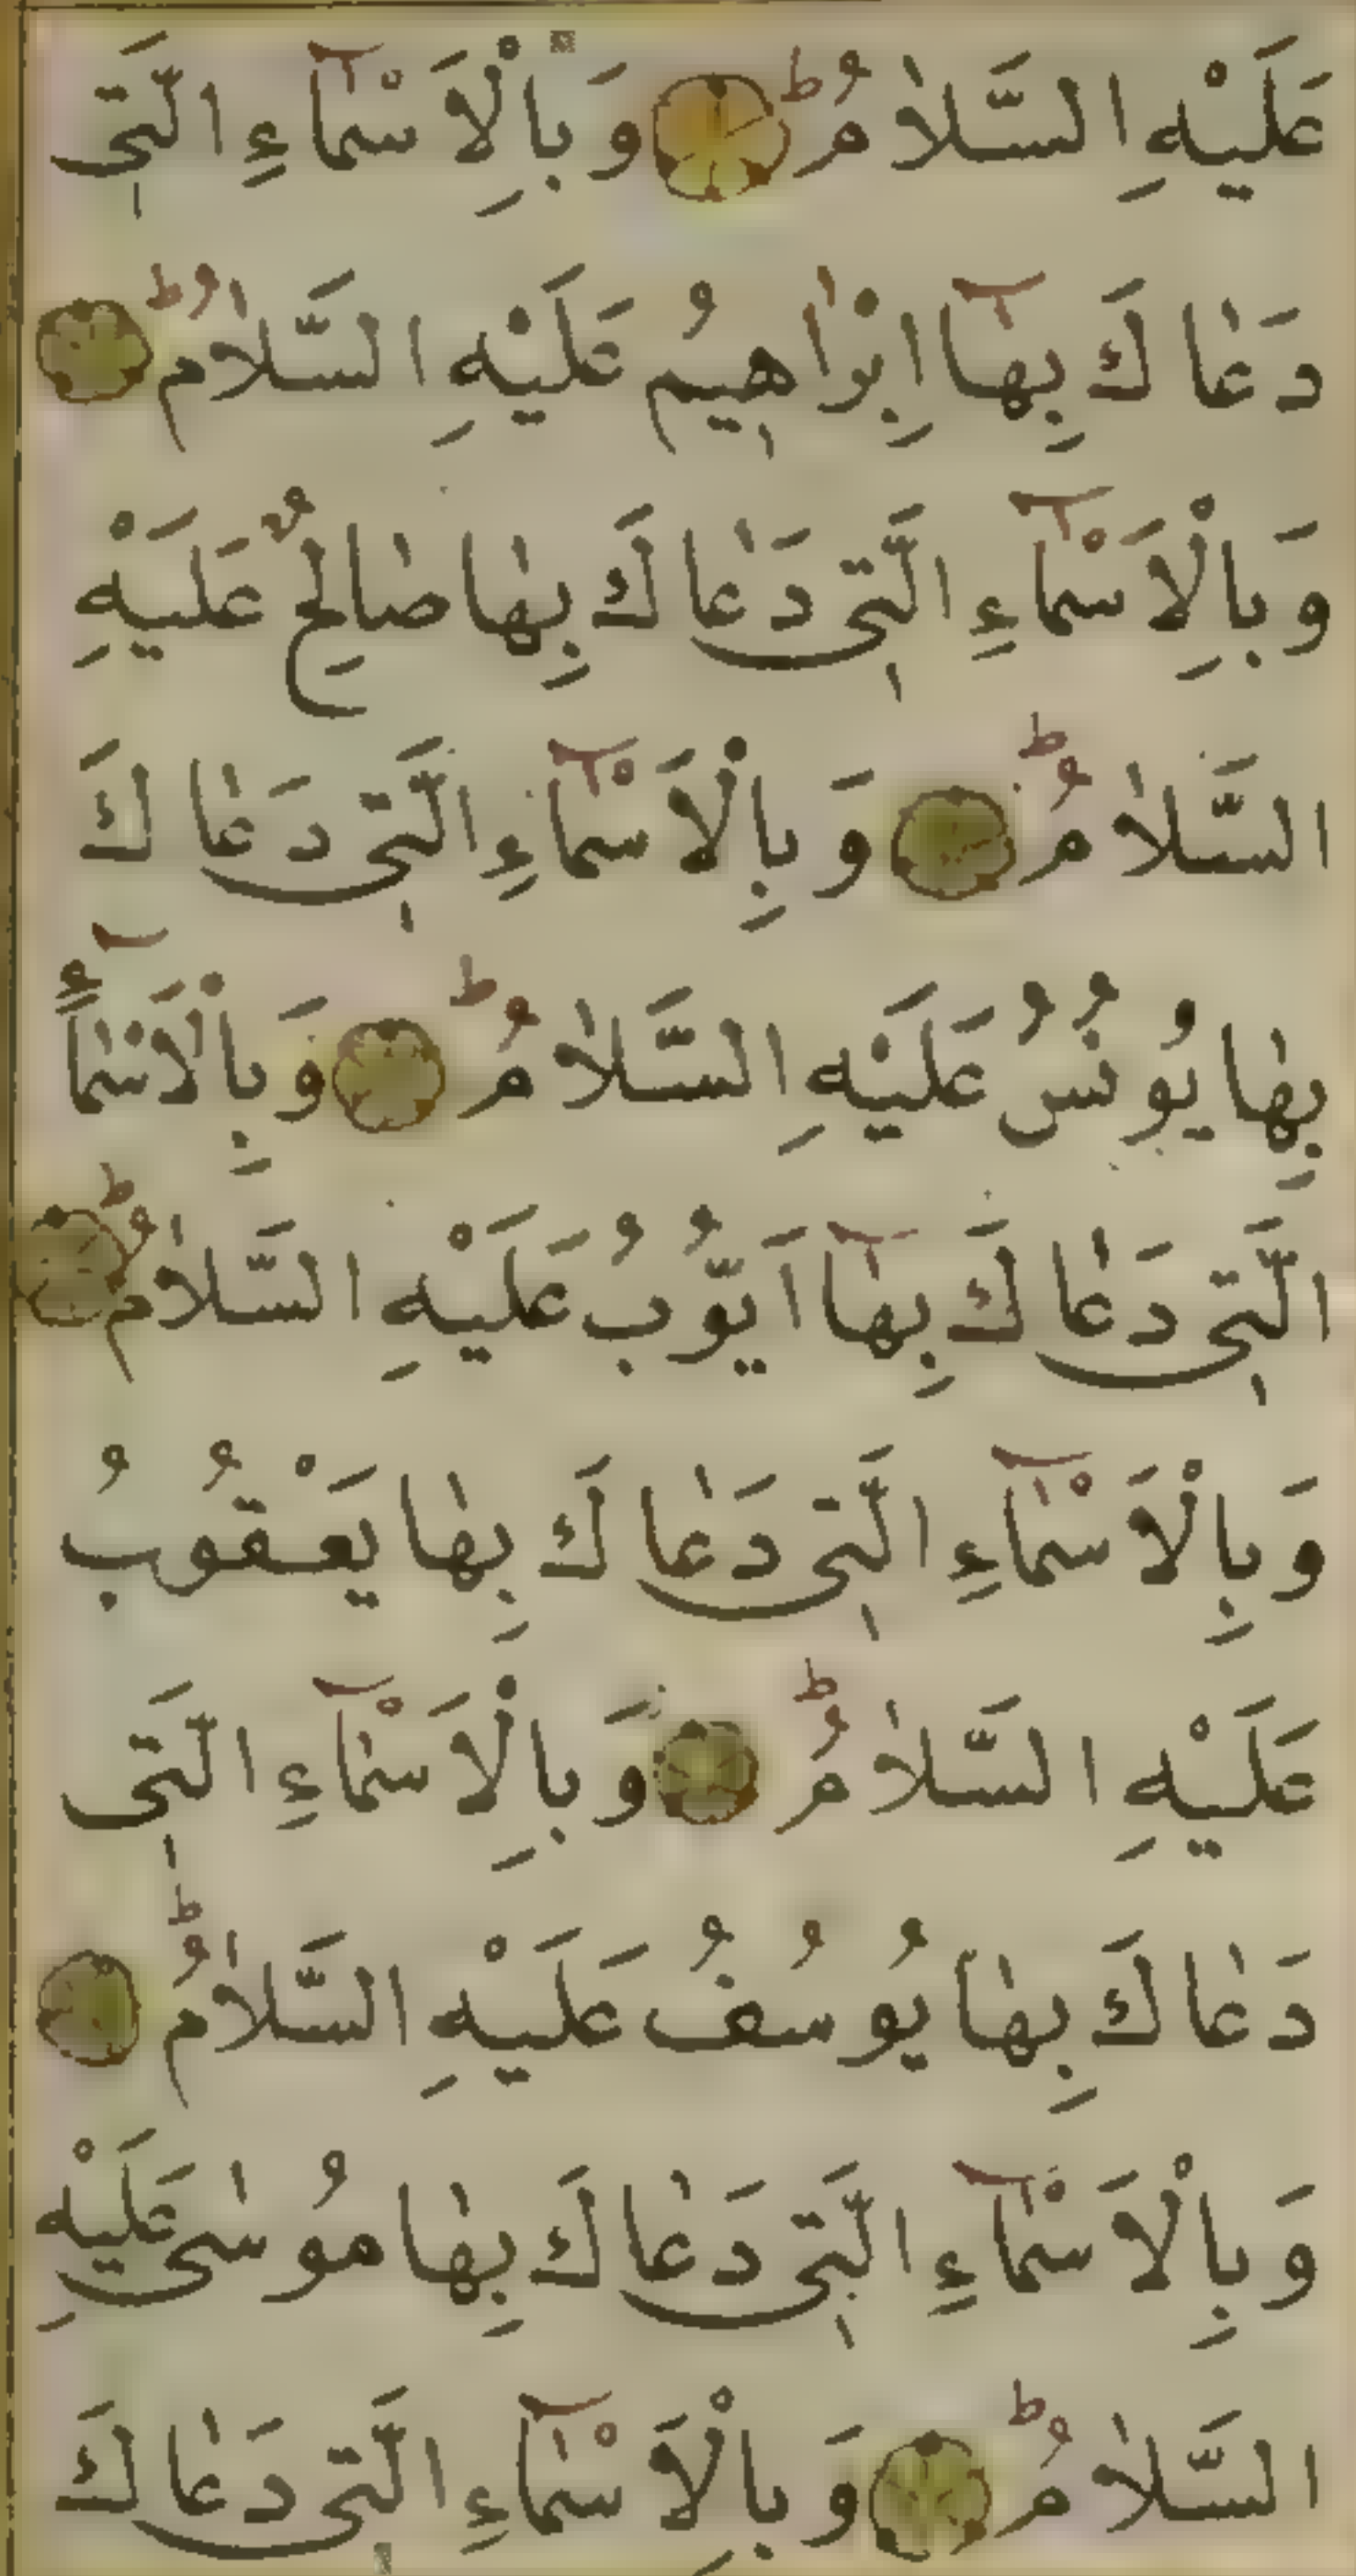 عَلَيْهِ السَّلَامُ ط وَبِالْاَسْمَآءِ الَّتٖى
دَعَاكَ بِهَآ اِبْرَاهٖيمُ عَلَيْهِ السَّلَامُ ط
وَبِالْاَسْمَآءِ الَّتٖى دَعَاكَ بِهَا صَالِحٌ عَلَيْهِ
السَّلَامُ ط وَبِالْاَسْمَآءِ الَّتٖى دَعَاكَ
بِهَا يُونُسُ عَلَيْهِ السَّلَامُ ط وَبِالْاَسْمَآءِ
الَّتٖى دَعَاكَ بِهَآ اَيُّوبُ عَلَيْهِ السَّلَامُ ط
وَبِالْاَسْمَآءِ الَّتٖى دَعَاكَ بِهَا يَعْقُوبُ
عَلَيْهِ السَّلَامُ ط وَبِالْاَسْمَآءِ الَّتٖى
دَعَاكَ بِهَا يُوسُفُ عَلَيْهِ السَّلَامُ ط
وَبِالْاَسْمَآءِ الَّتٖى دَعَاكَ بِهَا مُوسٰى عَلَيْهِ
السَّلَامُ ط وَبِالْاَسْمَآءِ الَّتٖى دَعَاكَ